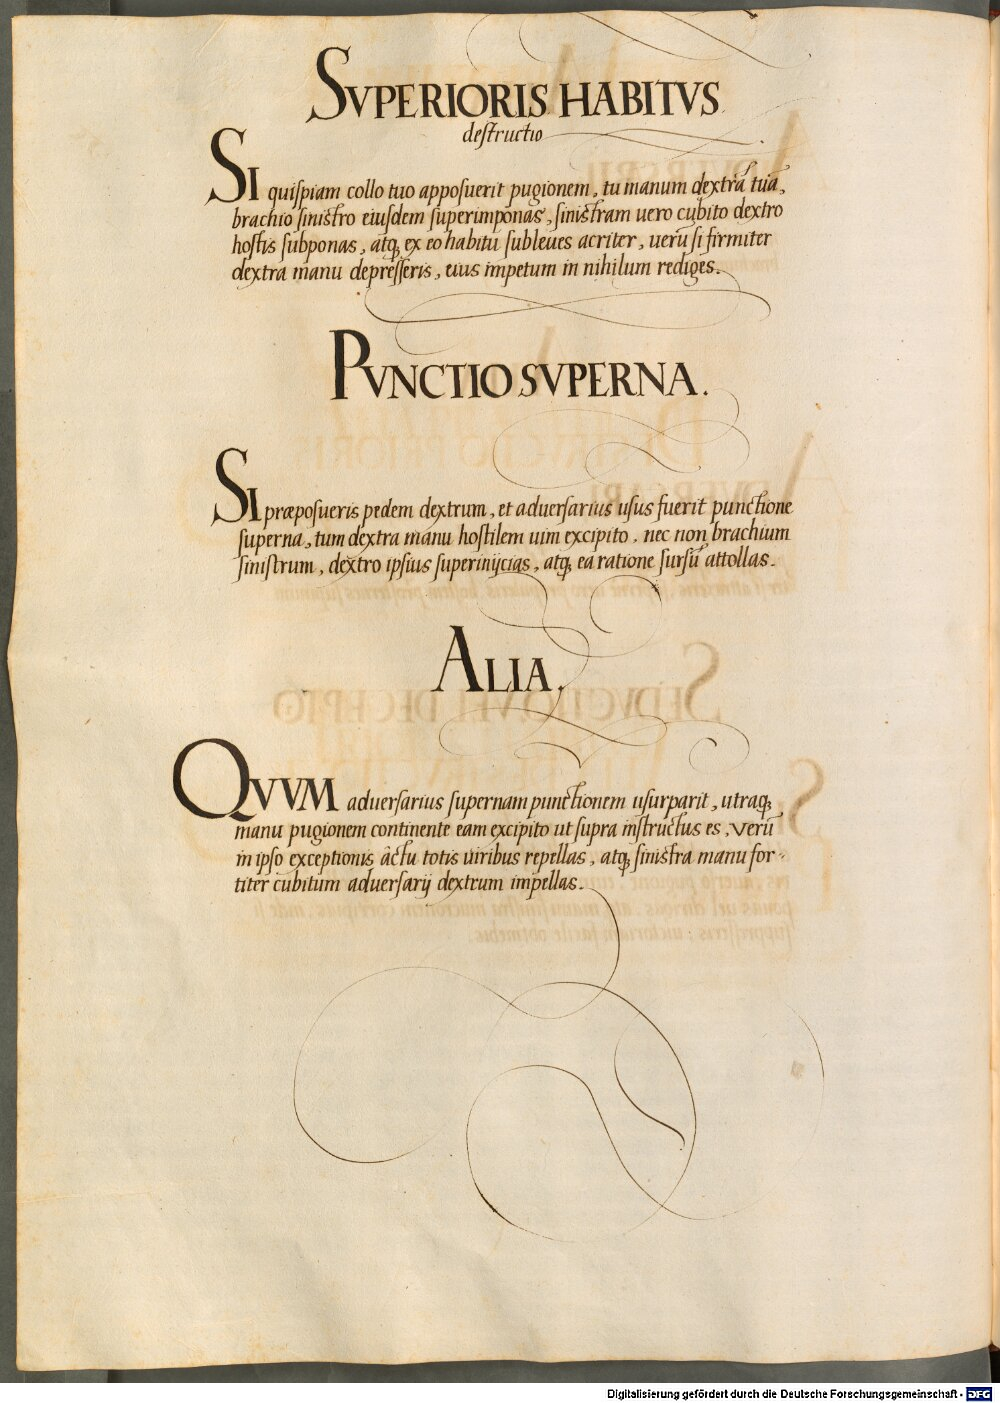 SVPERIORIS HABITVS
destructio
SI quispiam collo tuo apposuerit pugionem, tu manum dextrā tuā,
brachio sinistro eiusdem superimponas, sinistram uero cubito dextro
hostis subponas, atq; ex eo habitu subleues acriter, uerū si firmiter
dextra manu depresseris, eius impetum in nihilum rediges.
PVNCTIO SVPERNA.
SI præposueris pedem dextrum, et aduersarius usus fuerit punctione
superna, tum dextra manu hostilem uim excipito, nec non brachium
sinistrum, dextro ipsius superinijcias, atq; ea ratione sursū attollas.
ALIA.
QVVM aduersarius supernam punctionem usurparit, utraq;
manu pugionem continente eam excipito ut supra instructus es, verū
in ipso exceptionis actu totis uiribus repellas, atq; sinistra manu for-
titer cubitum aduersarij dextrum impellas.
Digitalisierung gefördert durch die Deutsche Forschungsgemeinschaft - DFG